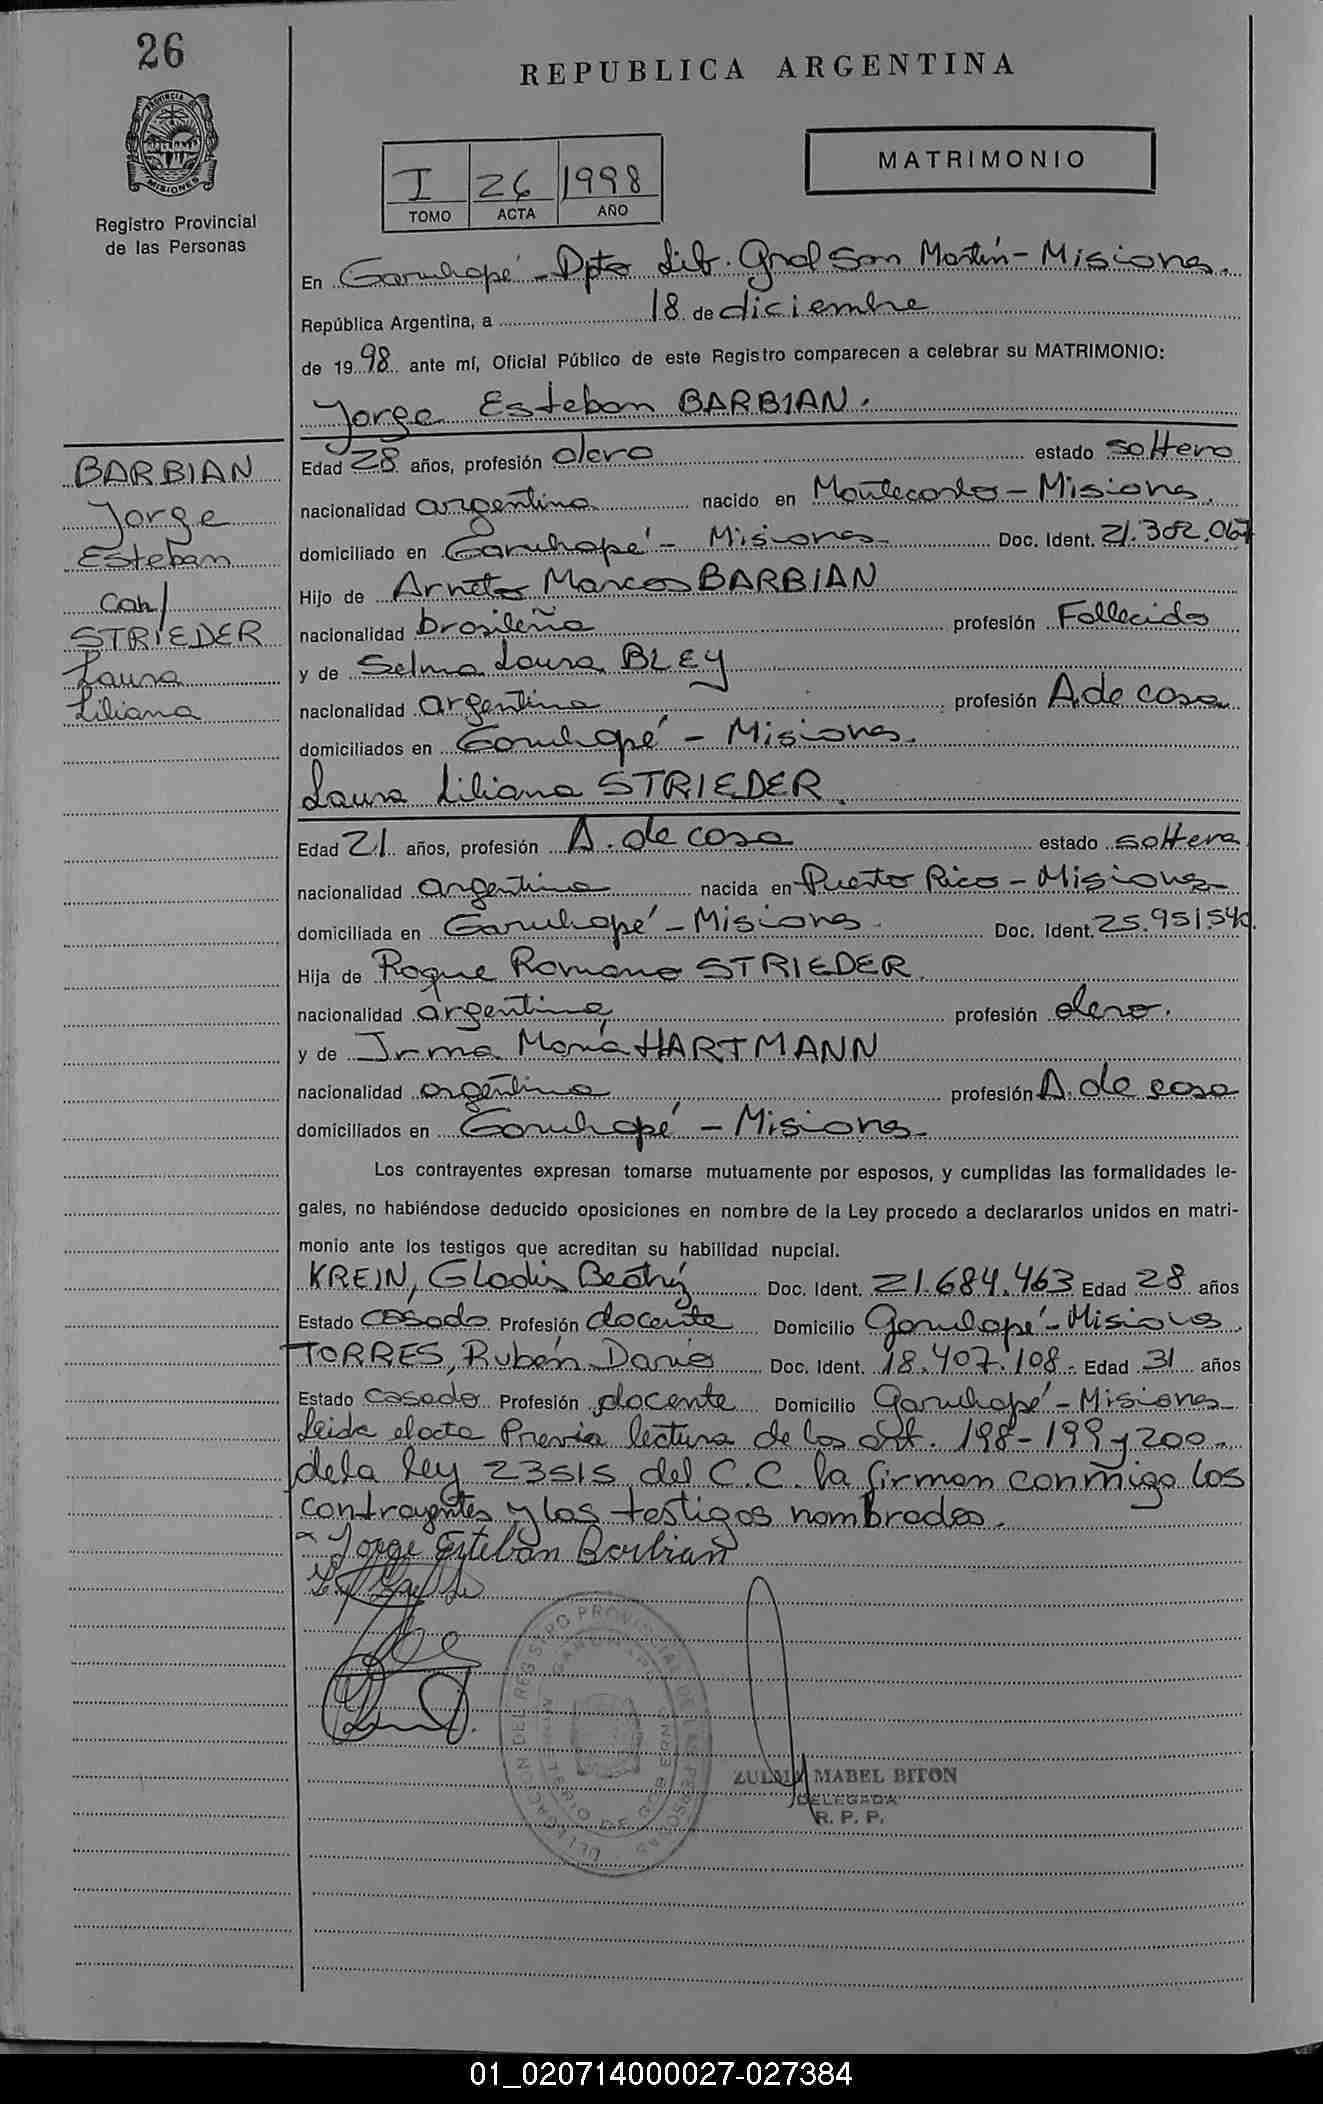 26
REPUBLICA ARGENTINA
PROVINCIA DE
MISIONES
Registro Provincial
de las Personas
MATRIMONIO
I 26 1998
TOMO ACTA AÑO
En Garuhapé - Dpto Lib. Gral San Martín - Misiones.
República Argentina, a 18 de diciembre
de 1998 ante mí, Oficial Público de este Registro comparecen a celebrar su MATRIMONIO:
Jorge Esteban BARBIAN.
BARBIAN
Jorge
Esteban
con/
STRIEDER
Laura
Liliana
Edad 28 años, profesión olero estado soltero
nacionalidad argentina nacido en Montecarlo - Misiones.
domiciliado en Garuhapé - Misiones - Doc. Ident. 21.302.067
Hijo de Marcos BARBIAN
nacionalidad brasileña profesión Fallecido
y de Selma Laura BLEY
nacionalidad argentina profesión A. de casa
domiciliados en Garuhapé - Misiones.
Laura Liliana STRIEDER.
Edad 21 años, profesión A. de casa estado soltera
nacionalidad argentina nacida en Puerto Rico - Misiones -
domiciliada en Garuhapé - Misiones. Doc. Ident. 25.951.540.
Hija de Roque Romano STRIEDER.
nacionalidad argentina profesión olero.
y de Irma María HARTMANN
nacionalidad argentina profesión A. de casa
domiciliados en Garuhapé - Misiones -
Los contrayentes expresan tomarse mutuamente por esposos, y cumplidas las formalidades le-
gales, no habiéndose deducido oposiciones en nombre de la Ley procedo a declararlos unidos en matri-
monio ante los testigos que acreditan su habilidad nupcial.
KREIN, Gladis Beatriz Doc. Ident. 21.684.463 Edad 28 años
Estado casado Profesión docente Domicilio Garuhapé - Misiones.
TORRES, Rubén Dario Doc. Ident. 18.407.108.- Edad 31 años
Estado casado Profesión docente Domicilio Garuhapé - Misiones -
Leida el acta Previa lectura de los art. 198 - 199 y 200 -
de la ley 23515 del C.C. la firman conmigo los
contrayentes y los testigos nombrados.
Jorge Esteban Barbian
DELEGACION DEL REGISTRO PROVINCIAL DE LAS PERSONAS
GARUHAPE
MINISTERIO DE GOBIERNO
ZULMA MABEL BITON
DELEGADA
R. P. P.
01_020714000027-027384